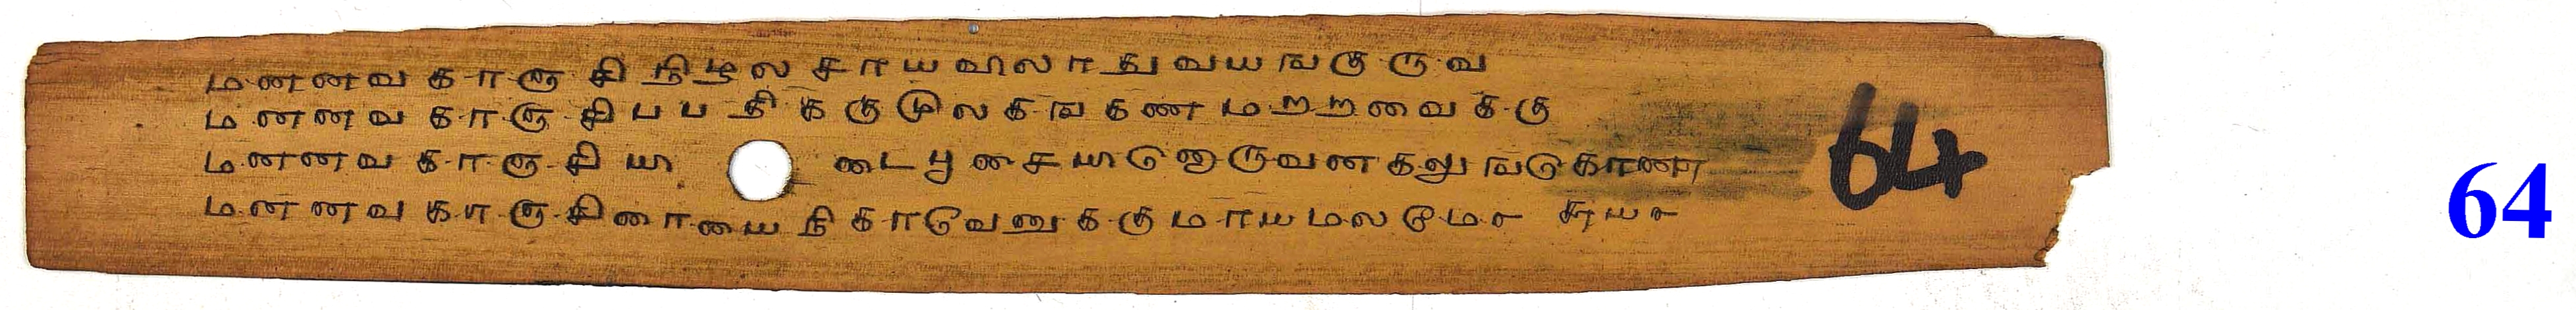 மனனவ காஞ சி நிழல சாய விலாதுவயஙகுருவ
மனனவ காஞ சிபபதிககுமூலகஙகண மறறவைககு
மனனவ காஞ சியா டைபுனசயாளொருவனகலுஙடுகாண
மனனவ காஞ சினாயை நிகாவெனுககுமாயமலமெ
64
64